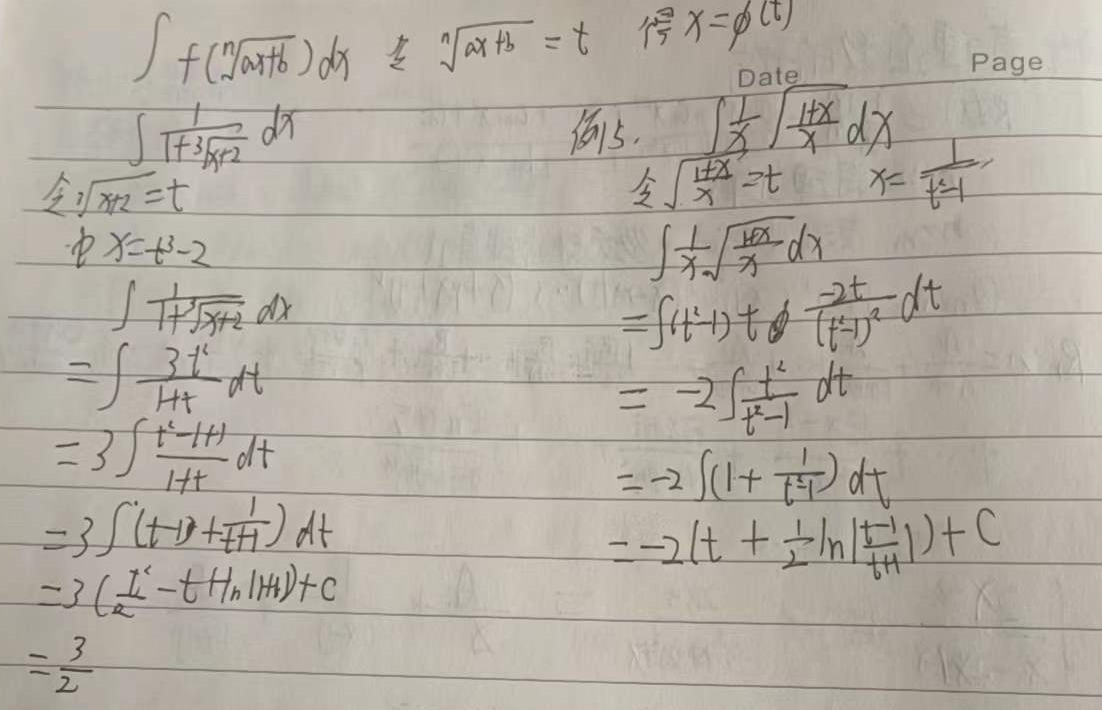 ∫ f(ⁿ√(ax+b)) dx 令 ⁿ√(ax+b) = t 得 x = φ(t)
Date Page
∫ 1/(1+³√(x+2)) dx
令 ³√(x+2) = t
x = t³-2
∫ 1/(1+³√(x+2)) dx
= ∫ 3t²/(1+t) dt
= 3∫ (t²-1+1)/(1+t) dt
= 3∫ ((t-1) + 1/(t+1)) dt
= 3(t²/2 - t + ln|1+t|) + C
= 3/2
例15. ∫ 1/x √((1+x)/x) dx
令 √((1+x)/x) = t x = 1/(t²-1)
∫ 1/x √((1+x)/x) dx
= ∫ (t²-1) t -2t/(t²-1)² dt
= -2∫ t²/(t²-1) dt
= -2∫ (1 + 1/(t²-1)) dt
= -2(t + 1/2 ln|(t-1)/(t+1)|) + C